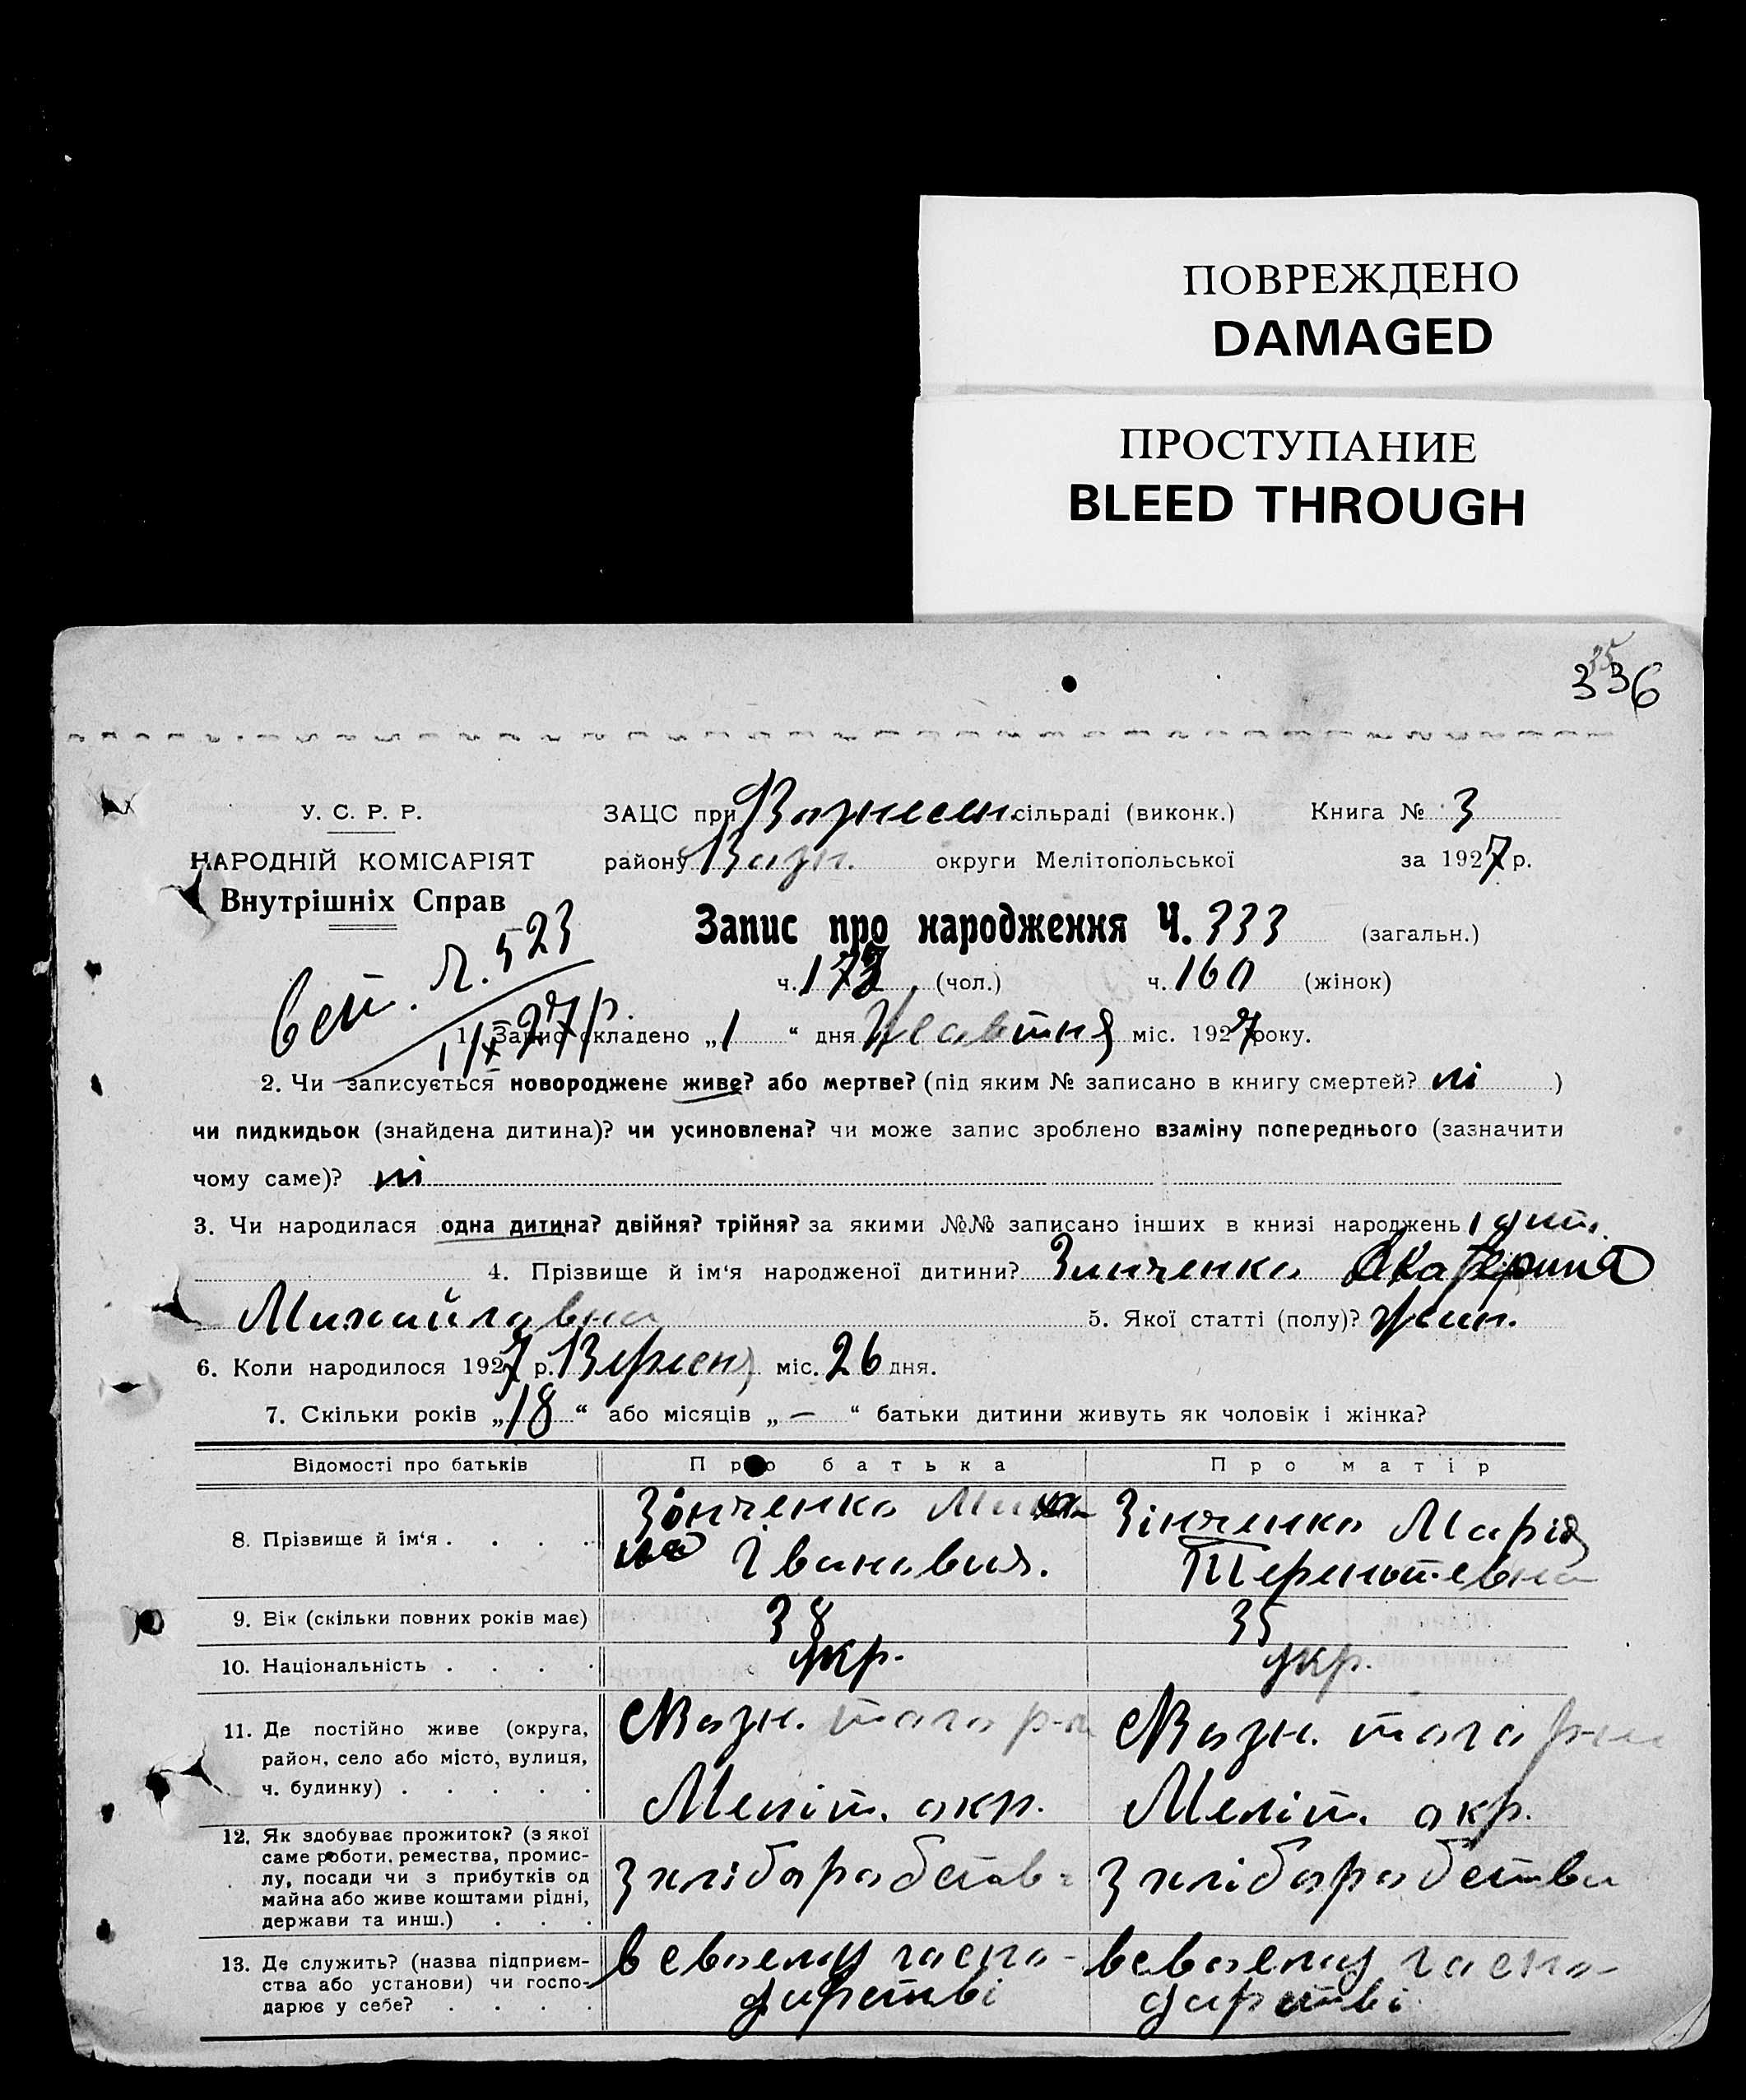 ПОВРЕЖДЕНО
DAMAGED
ПРОСТУПАНИЕ
BLEED THROUGH
336
У. С. Р. Р.
НАРОДНІЙ КОМІСАРІЯТ
Внутрішніх Справ
ЗАЦС при Вознесен. сільраді (виконк.) Книга № 3
району Возн. округи Мелітопольської за 1927 р.
Запис про народження Ч. 333 (загальн.)
ч. 173 (чол.) ч. 160 (жінок)
ч. 523
1/X 27 р.
1. Запис складено „1“ дня Жовтня міс. 1927 року.
2. Чи записується новороджене живе? або мертве? (під яким № записано в книгу смертей? ні )
чи пидкидьок (знайдена дитина)? чи усиновлена? чи може запис зроблено взаміну попереднього (зазначити
чому саме)? ні
3. Чи народилася одна дитина? двійня? трійня? за якими №№ записано інших в книзі народжень 1 дит.
4. Прізвище й ім‘я народженої дитини? Зинченко Екатерина
Михайловна 5. Якої статті (полу)? Жін.
6. Коли народилося 1927 р. Вересня міс. 26 дня.
7. Скільки років „18“ або місяців „—“ батьки дитини живуть як чоловік і жінка?
Відомості про батьків Про батька Про матір
8. Прізвище й ім‘я . . . . Зінченко Михайло Іванович. Зінченко Марія Терентевна
9. Вік (скільки повних років має) 38 35
10. Національність . . . . укр. укр.
11. Де постійно живе (округа,
район, село або місто, вулиця,
ч. будинку) . . . . .
Возн. того р-н Мопіт. окр.
Возн. того р-ну Меліт. окр.
12. Як здобуває прожиток? (з якої
саме роботи, ремества, промис-
лу, посади чи з прибутків од
майна або живе коштами рідні,
держави та инш.) . . .
З хліборобств
З хліборобства
13. Де служить? (назва підприєм-
ства або установи) чи госпо-
дарює у себе? . . . .
в своему господарстві
в своему господарстві